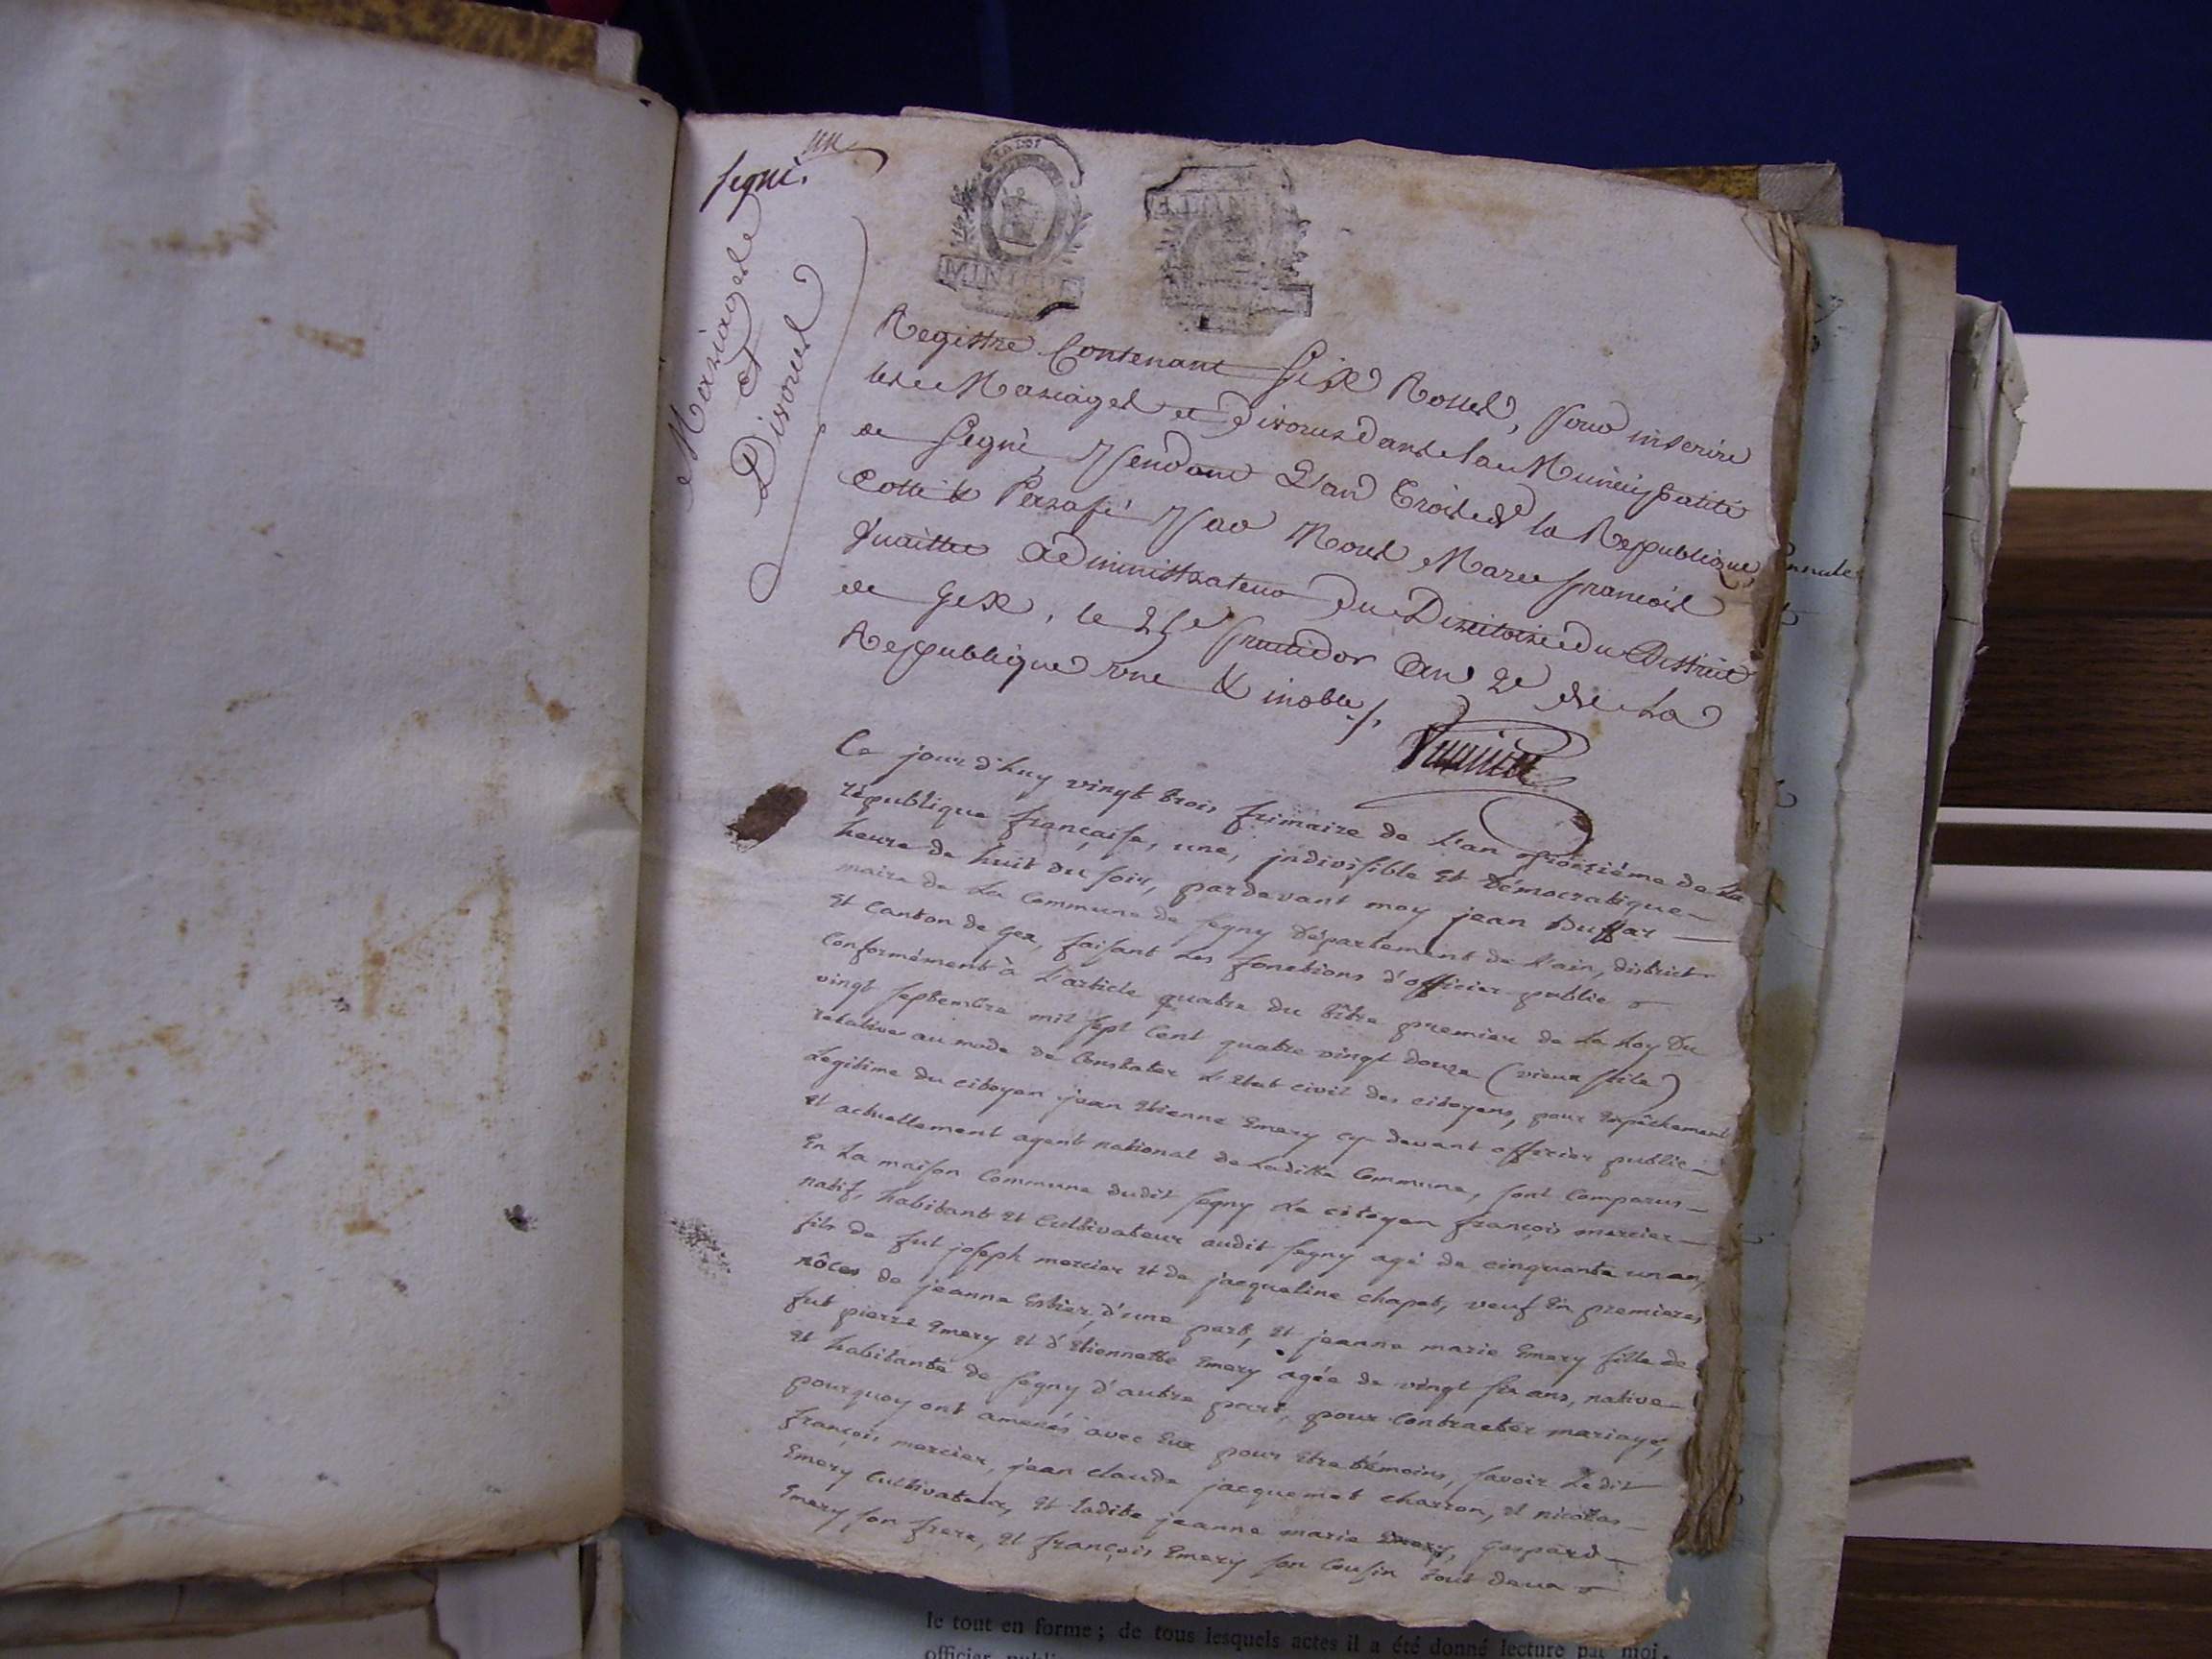 un
Segni.
Mariages
et
Divorces
MINI
Registre Contenant Six Rolles, pour inscrire
les Mariages et Divorces dans la Municipalité
de Segni pendant L'an Trois de la Republique,
Cotté & Parafé par Nous Marc françois
administrateur du Directoire du District
de Gex, le 25e fructidor an 2e de La
Republique une & indble ./.
Ce jourd'huy vingt trois frimaire de L'an troisiéme de La
république française, une, jndivisible Et Démocratique
heure de huit du soir, pardevant moy jean Duffar
maire de La Commune de Segny Département de L'ain, district
Et Canton de Gex, faisant Les fonctions d'officier public
Conformément à L'article quatre du titre premier de La Loy Du
vingt Septembre mil sept Cent quatre vingt Douze (vieux stile)
relative au mode de Constater L'Etat civil des citoyens, pour Empêchement
Legitime du citoyen jean Etienne Emery cy-devant officier public
Et actuellement agent national de Laditte Commune, sont Comparus
En La maison Commune dudit Segny Le citoyen françois mercier
natif, habitant Et Cultivateur audit Segny agé de cinquante un an,
fils de fut joseph mercier Et de jacqueline chapet, veuf En premieres
nôces de jeanne Estier, d'une part, Et jeanne marie Emery fille de
fut pierre Emery Et d'Etiennette Emery agée de vingt six ans, native
Et habitante de Segny d'autre part, pour Contracter mariage,
pourquoy ont amenés avec Eux pour Etre témoins, savoir Ledit
françois mercier, jean claude jacquemet charron, Et nicolas
Emery Cultivateur, Et Ladite jeanne marie Emery, gaspard
Emery son frere, Et françois Emery son Cousin tout deux
le tout en forme ; de tous lesquels actes il a été donné lecture par moi,
officier